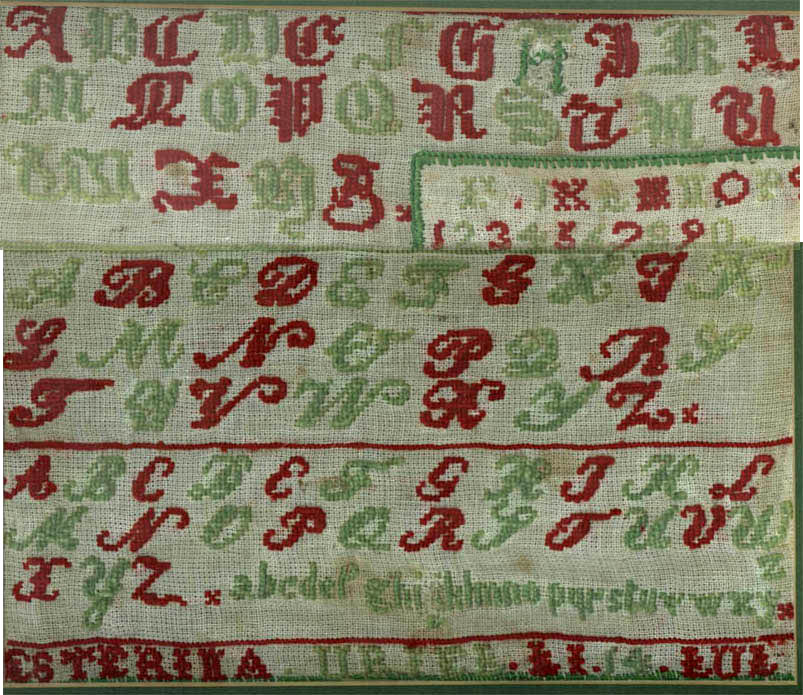 A B C D E F G H I K L
M N O P Q R S T U V
W X Y Z
K L M N O P
1 2 3 4 5 6 7 8 9 0
A B C D E F G H I K
L M N O P Q R S
T U V W X Y Z
A B C D E F G H I K L
M N O P Q R S T U V W
X Y Z a b c d e f g h i j k l m n o p q r s t u v w x y z
ESTERINA . LI . 14 . LUL